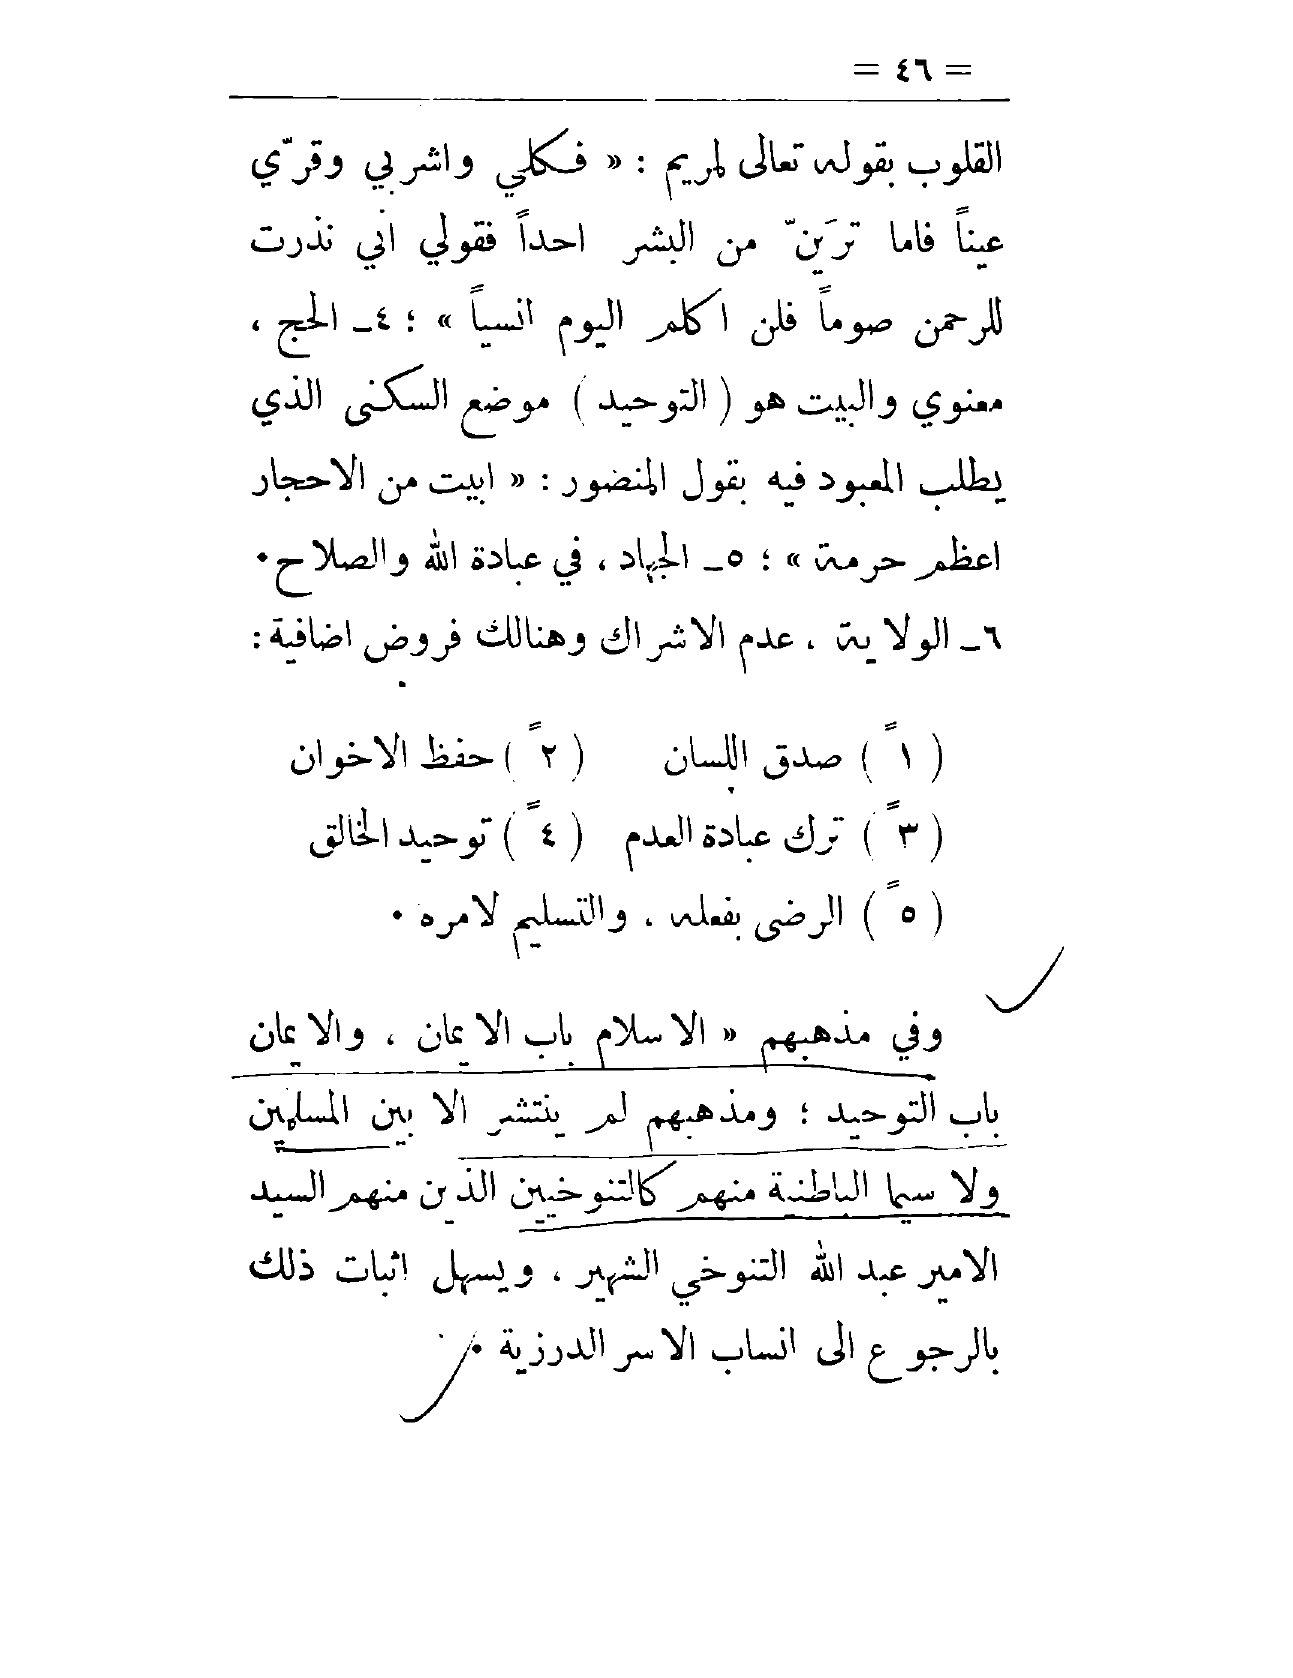 = ٤٦ =
القلوب بقوله تعالى لمريم : « فكلي واشربي وقرّي
عيناً فاما ترَينّ من البشر احداً فقولي اني نذرت
للرحمن صوماً فلن اكلم اليوم انسياً » ؛ ٤ـ الحج ،
معنوي والبيت هو ( التوحيد ) موضع السكنى الذي
يطلب المعبود فيه بقول المنضور : « ابيت من الاحجار
اعظم حرمة » ؛ ٥ـ الجهاد ، في عبادة الله والصلاح ٠
٦ـ الولاية ، عدم الاشراك وهنالك فروض اضافية :
( ١ً ) صدق اللسان ( ٢ً ) حفظ الاخوان
( ٣ً ) ترك عبادة العدم ( ٤ً ) توحيد الخالق
( ٥ً ) الرضى بفعله ، والتسليم لامره ٠
وفي مذهبهم « الاسلام باب الايمان ، والايمان
باب التوحيد ؛ ومذهبهم لم ينتشر الا بين المسلمين
ولا سيما الباطنية منهم كالتنوخيين الذين منهم السيد
الامير عبد الله التنوخي الشهير ، ويسهل اثبات ذلك
بالرجوع الى انساب الاسر الدرزية ٠